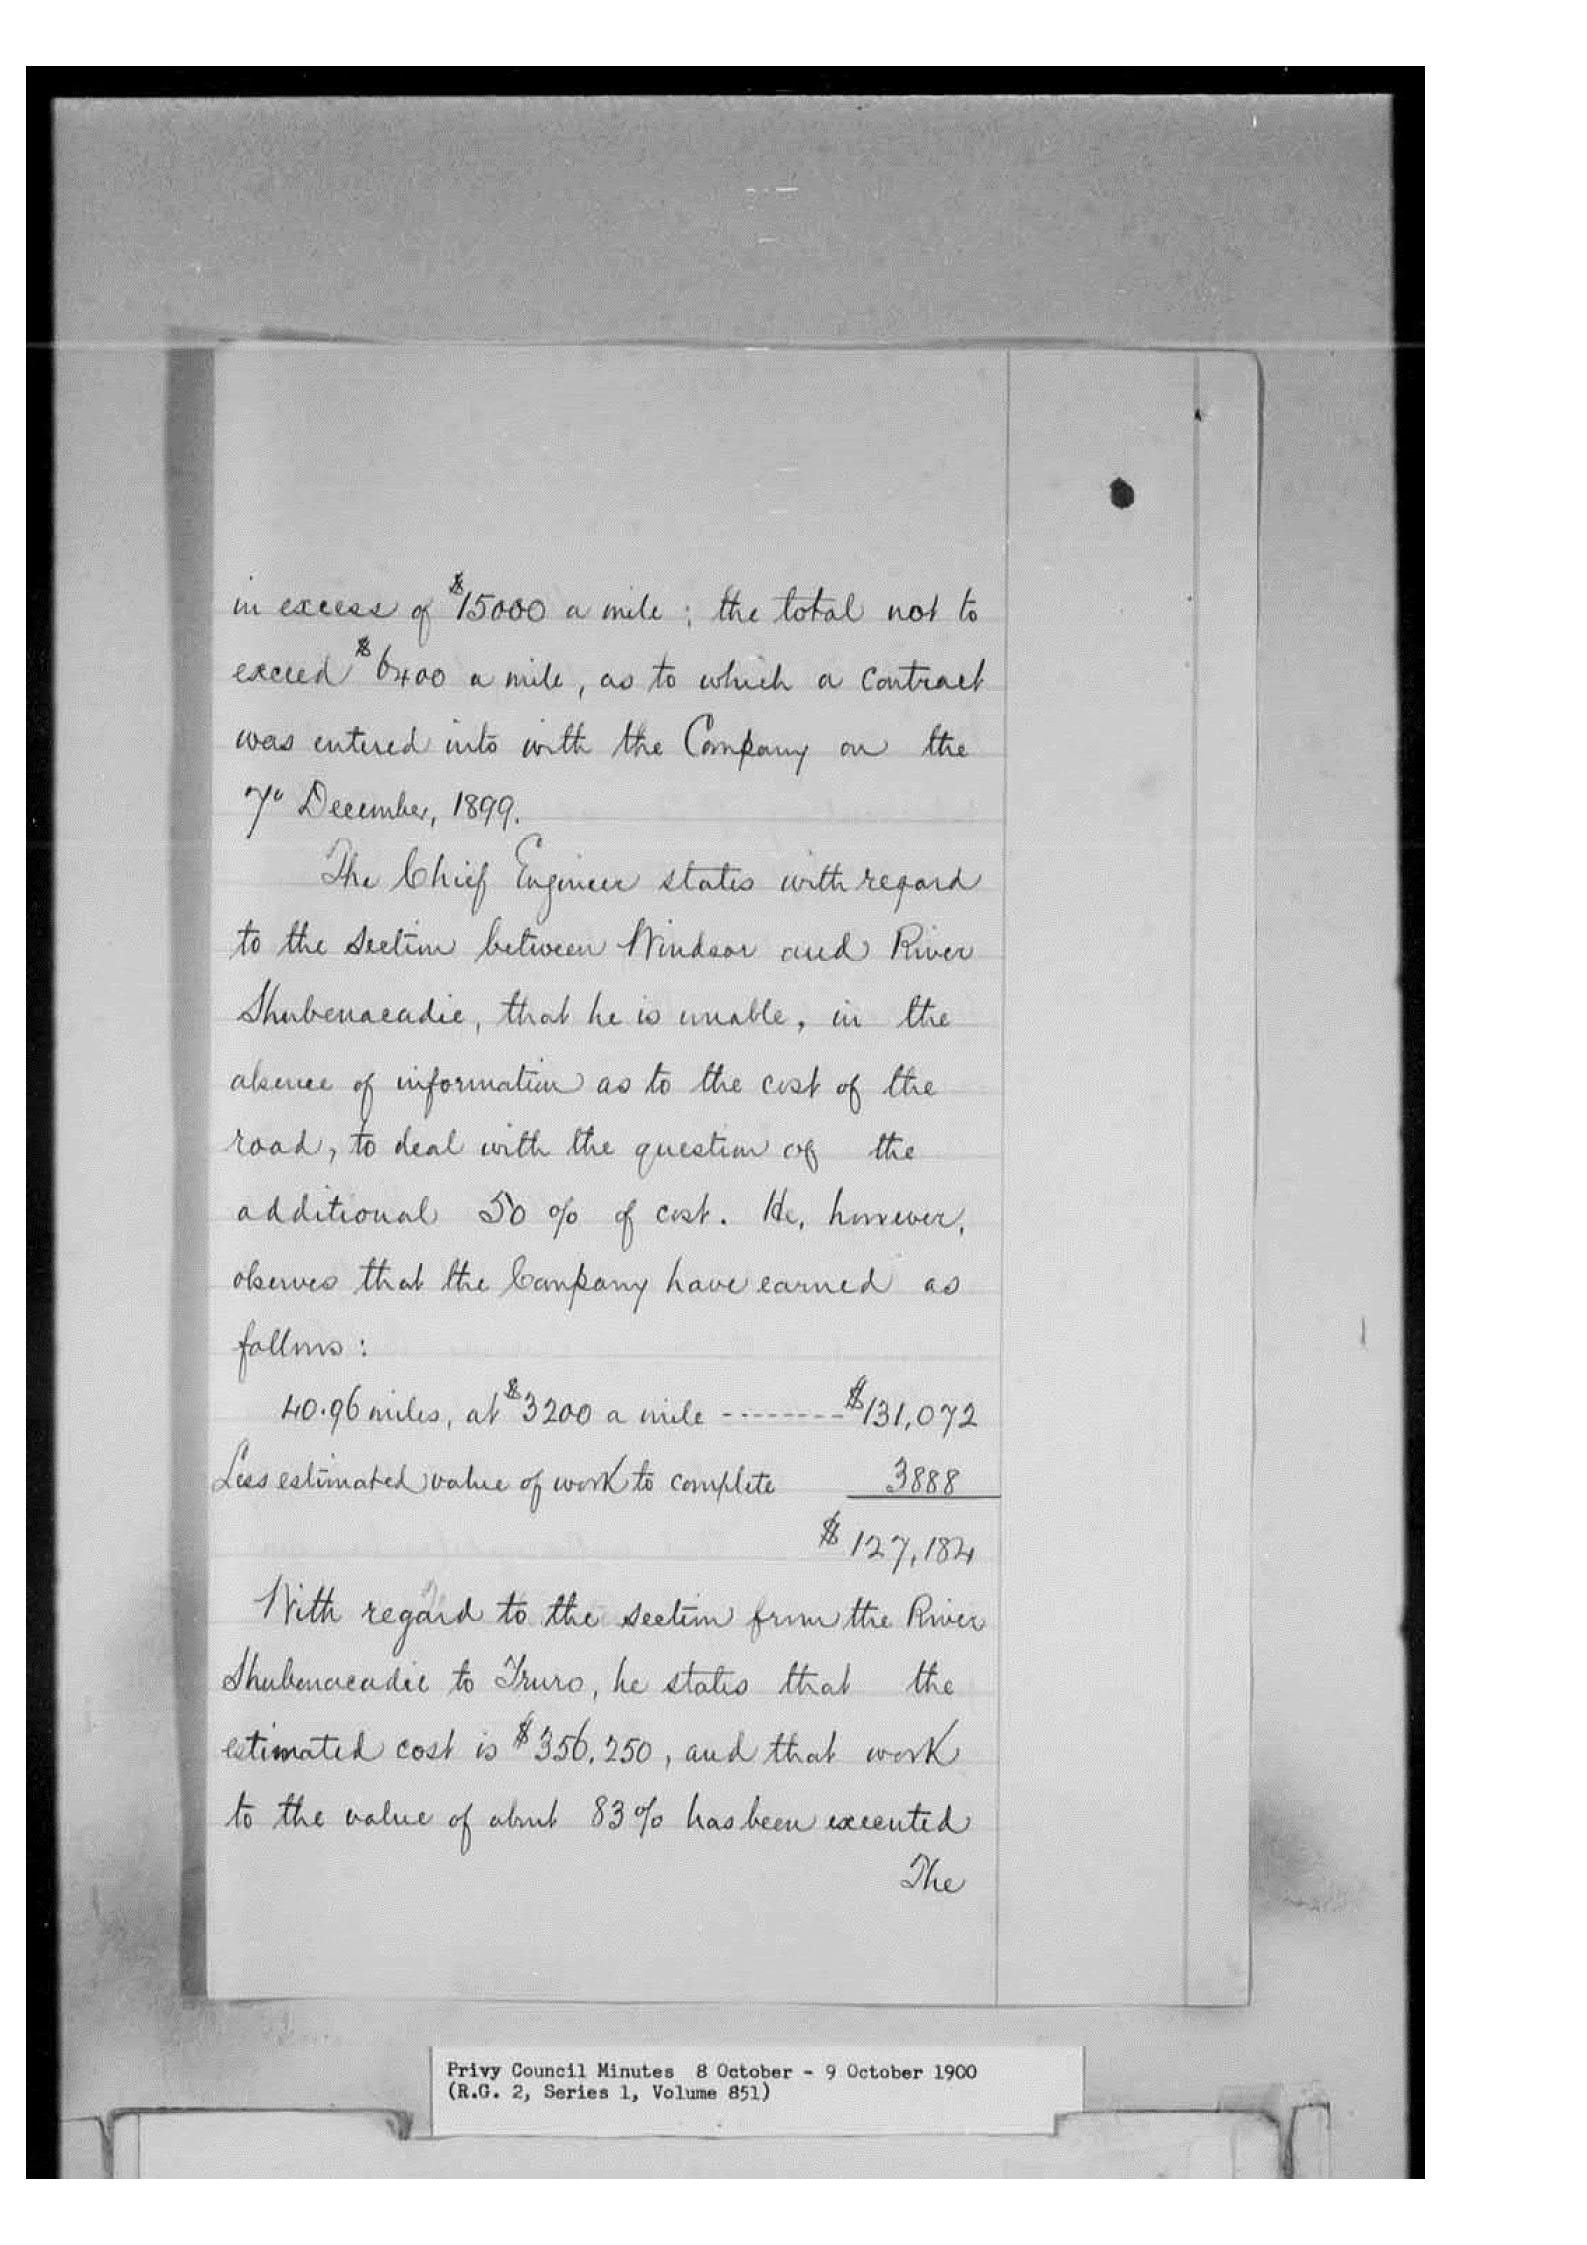 in excess of $15000 a mile; the total not to
exceed $6400 a mile, as to which a contract
was entered into with the Company on the
7th December, 1899.
The Chief Engineer states with regard
to the section between Windsor and River
Shubenacadie, that he is unable, in the
absence of information as to the cost of the
road, to deal with the question of the
additional 50% of cost. He, however,
observes that the Company have earned as
follows:
40.96 miles, at $3200 a mile -------- $131,072
Less estimated value of work to complete 3888
$127,184
With regard to the section from the River
Shubenacadie to Truro, he states that the
estimated cost is $356,250, and that work
to the value of about 83% has been executed
The
Privy Council Minutes 8 October - 9 October 1900
(R.G. 2, Series 1, Volume 851)